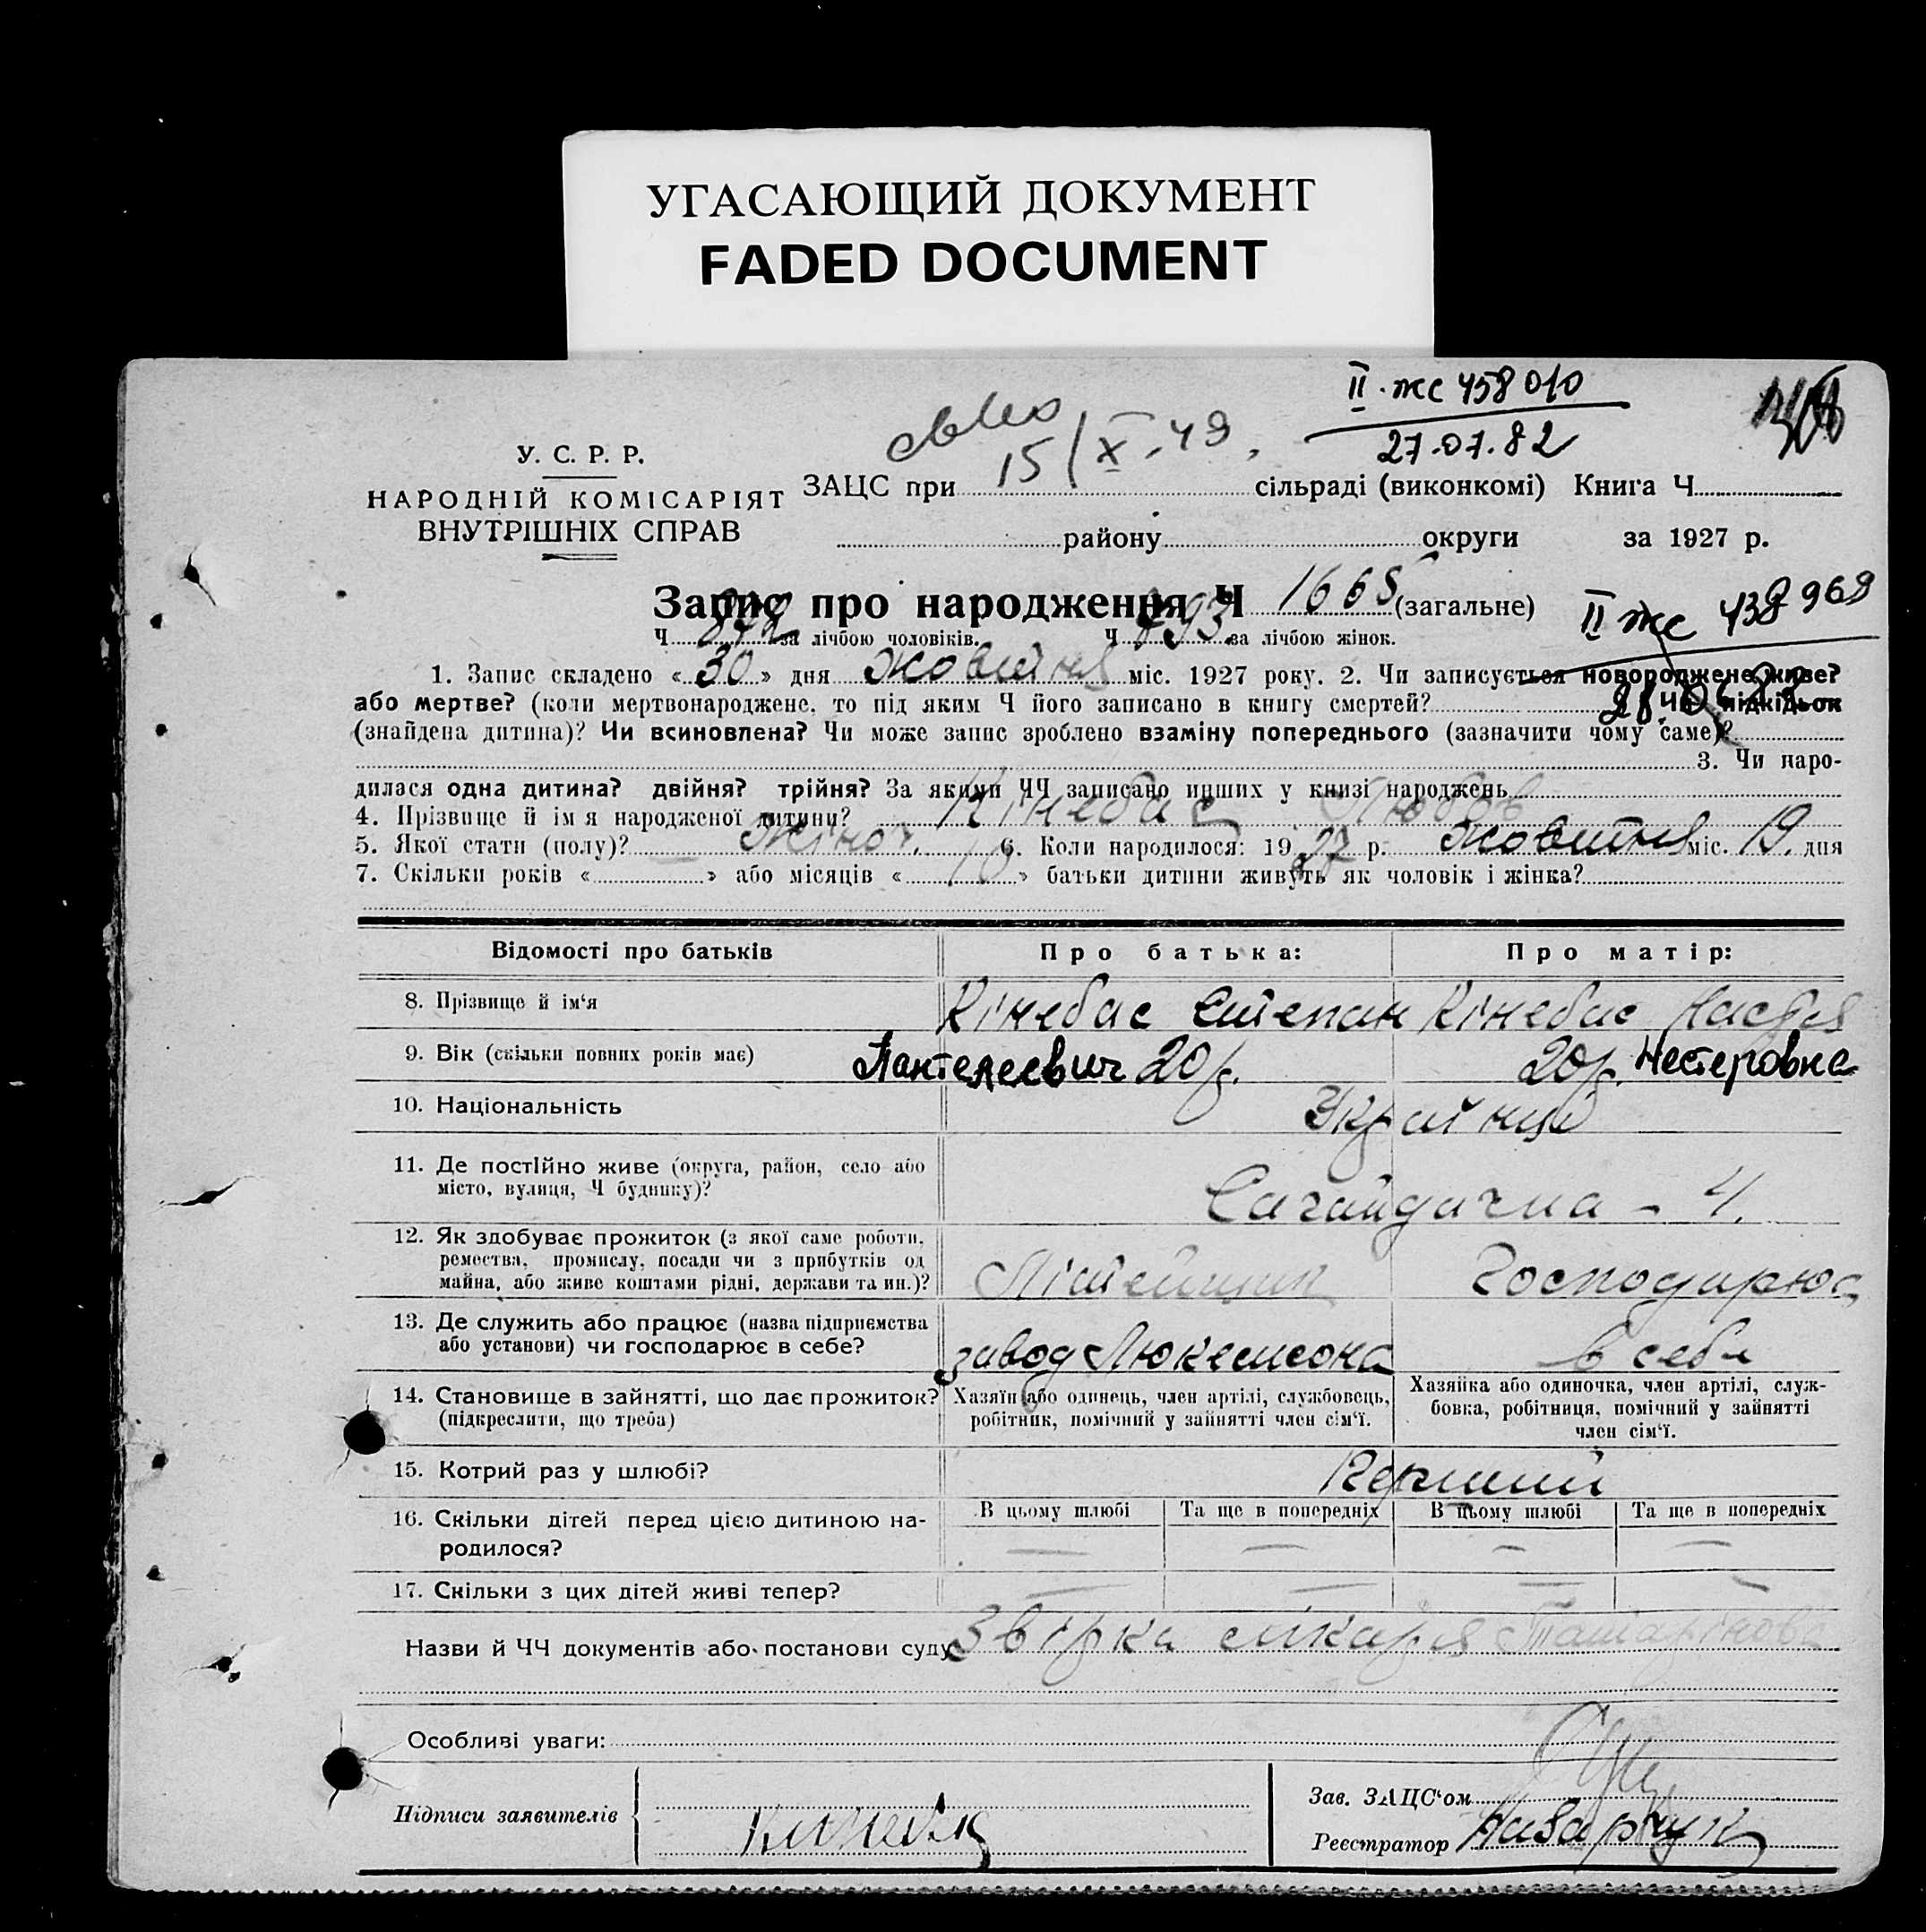 УГАСАЮЩИЙ ДОКУМЕНТ
FADED DOCUMENT
II·жс 458010
27.07.82
15/X-49.
У. С. Р. Р.
НАРОДНІЙ КОМІСАРІЯТ
ВНУТРІШНІХ СПРАВ
ЗАЦС при сільраді (виконкомі) Книга Ч
району округи за 1927 р.
Запис про народження Ч 1665 (загальне)
II жс
Ч 872 за лічбою чоловіків. Ч 793 за лічбою жінок.
1. Запис складено « 30 » дня жовтня міс. 1927 року. 2. Чи записується новороджене живе?
або мертве? (коли мертвонароджене, то під яким Ч його записано в книгу смертей? Чи підкідьок
(знайдена дитина)? Чи всиновлена? Чи може запис зроблено взаміну попереднього (зазначити чому саме)?
3. Чи наро-
дилася одна дитина? двійня? трійня? За якими ЧЧ записано инших у книзі народжень
4. Прізвище й ім я народженої дитини? Кінебас Любов
5. Якої стати (полу)? Жіноч. 6. Коли народилося: 1927 р. жовтня міс. 19. дня
7. Скільки років « » або місяців « 10 » батьки дитини живуть як чоловік і жінка?
Відомості про батьків Про батька: Про матір:
8. Прізвище й ім‘я Кінебас Степан Кінебас Настя
9. Вік (скільки повних років має) Пантелеевич 20 р. 20 р. Нестеровна
10. Національність Українці
11. Де постійно живе (округа, район, село або
місто, вулиця, Ч будинку)? Сагайдачна - 4.
12. Як здобуває прожиток (з якої саме роботи,
ремества, промислу, посади чи з прибутків од
майна, або живе коштами рідні, держави та ин.)? Літейщик Господарює
13. Де служить або працює (назва підприємства
або установи) чи господарює в себе? завод в себе
14. Становище в зайнятті, що дає прожиток?
(підкреслити, що треба)
Хазяїн або одинець, член артілі, службовець,
робітник, помічний у зайнятті член сім‘ї.
Хазяйка або одиночка, член артілі, служ-
бовка, робітниця, помічний у зайнятті
член сім‘ї.
15. Котрий раз у шлюбі? Перший
16. Скільки дітей перед цією дитиною на-
родилося?
В цьому шлюбі Та ще в попередніх В цьому шлюбі Та ще в попередніх
17. Скільки з цих дітей живі тепер?
Назви й ЧЧ документів або постанови суду Звірка лікаря
Особливі уваги:
Підписи заявителів
Зав. ЗАЦС‘ом
Реєстратор Назарчук